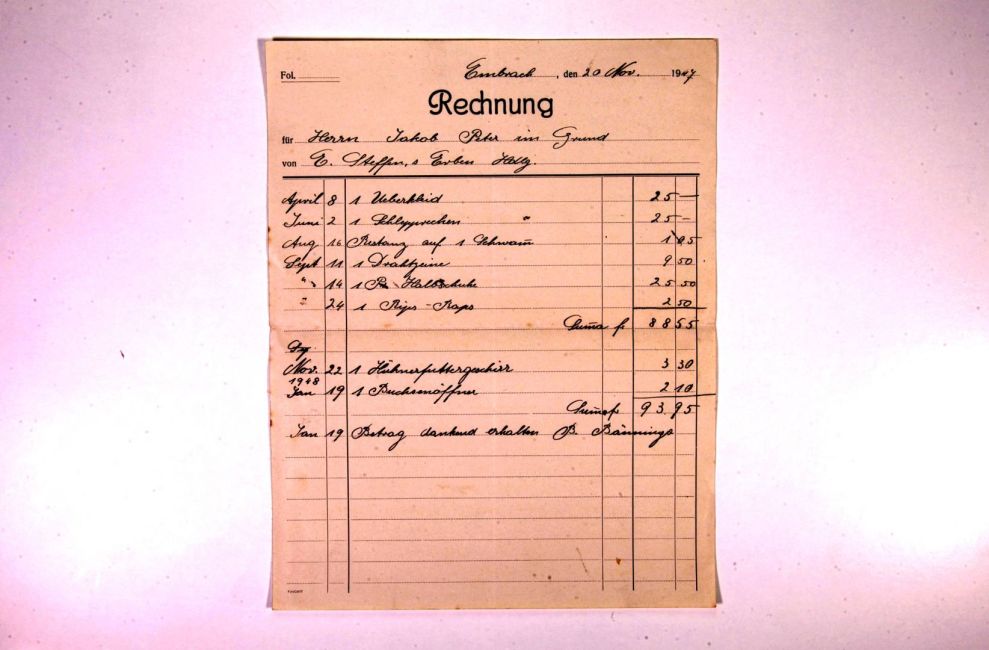 Fol.
Embrach, den 20 Nov. 1947
Rechnung
für Herrn Jakob Peter im Grund
von E. Steffen,s Erben Hdlg.
April 8 1 Ueberkleid 25 —
Juni 2 1 Schlepprechen " 25 —
Aug 16 Restanz auf 1 1
Sept 11 1 Drahtzeine 9 50
" 14 1 Pr. Halbschuhe 25 50
" 24 1 Rips - Kaps 2 50
Suma fr 88 55
Nov. 22 1 Hühnerfuttergeschirr 3 30
1948
Jan 19 1 Buchsenöffner 2 10
Suma fr 93.95
Jan 19 Betrag dankend erhalten B.